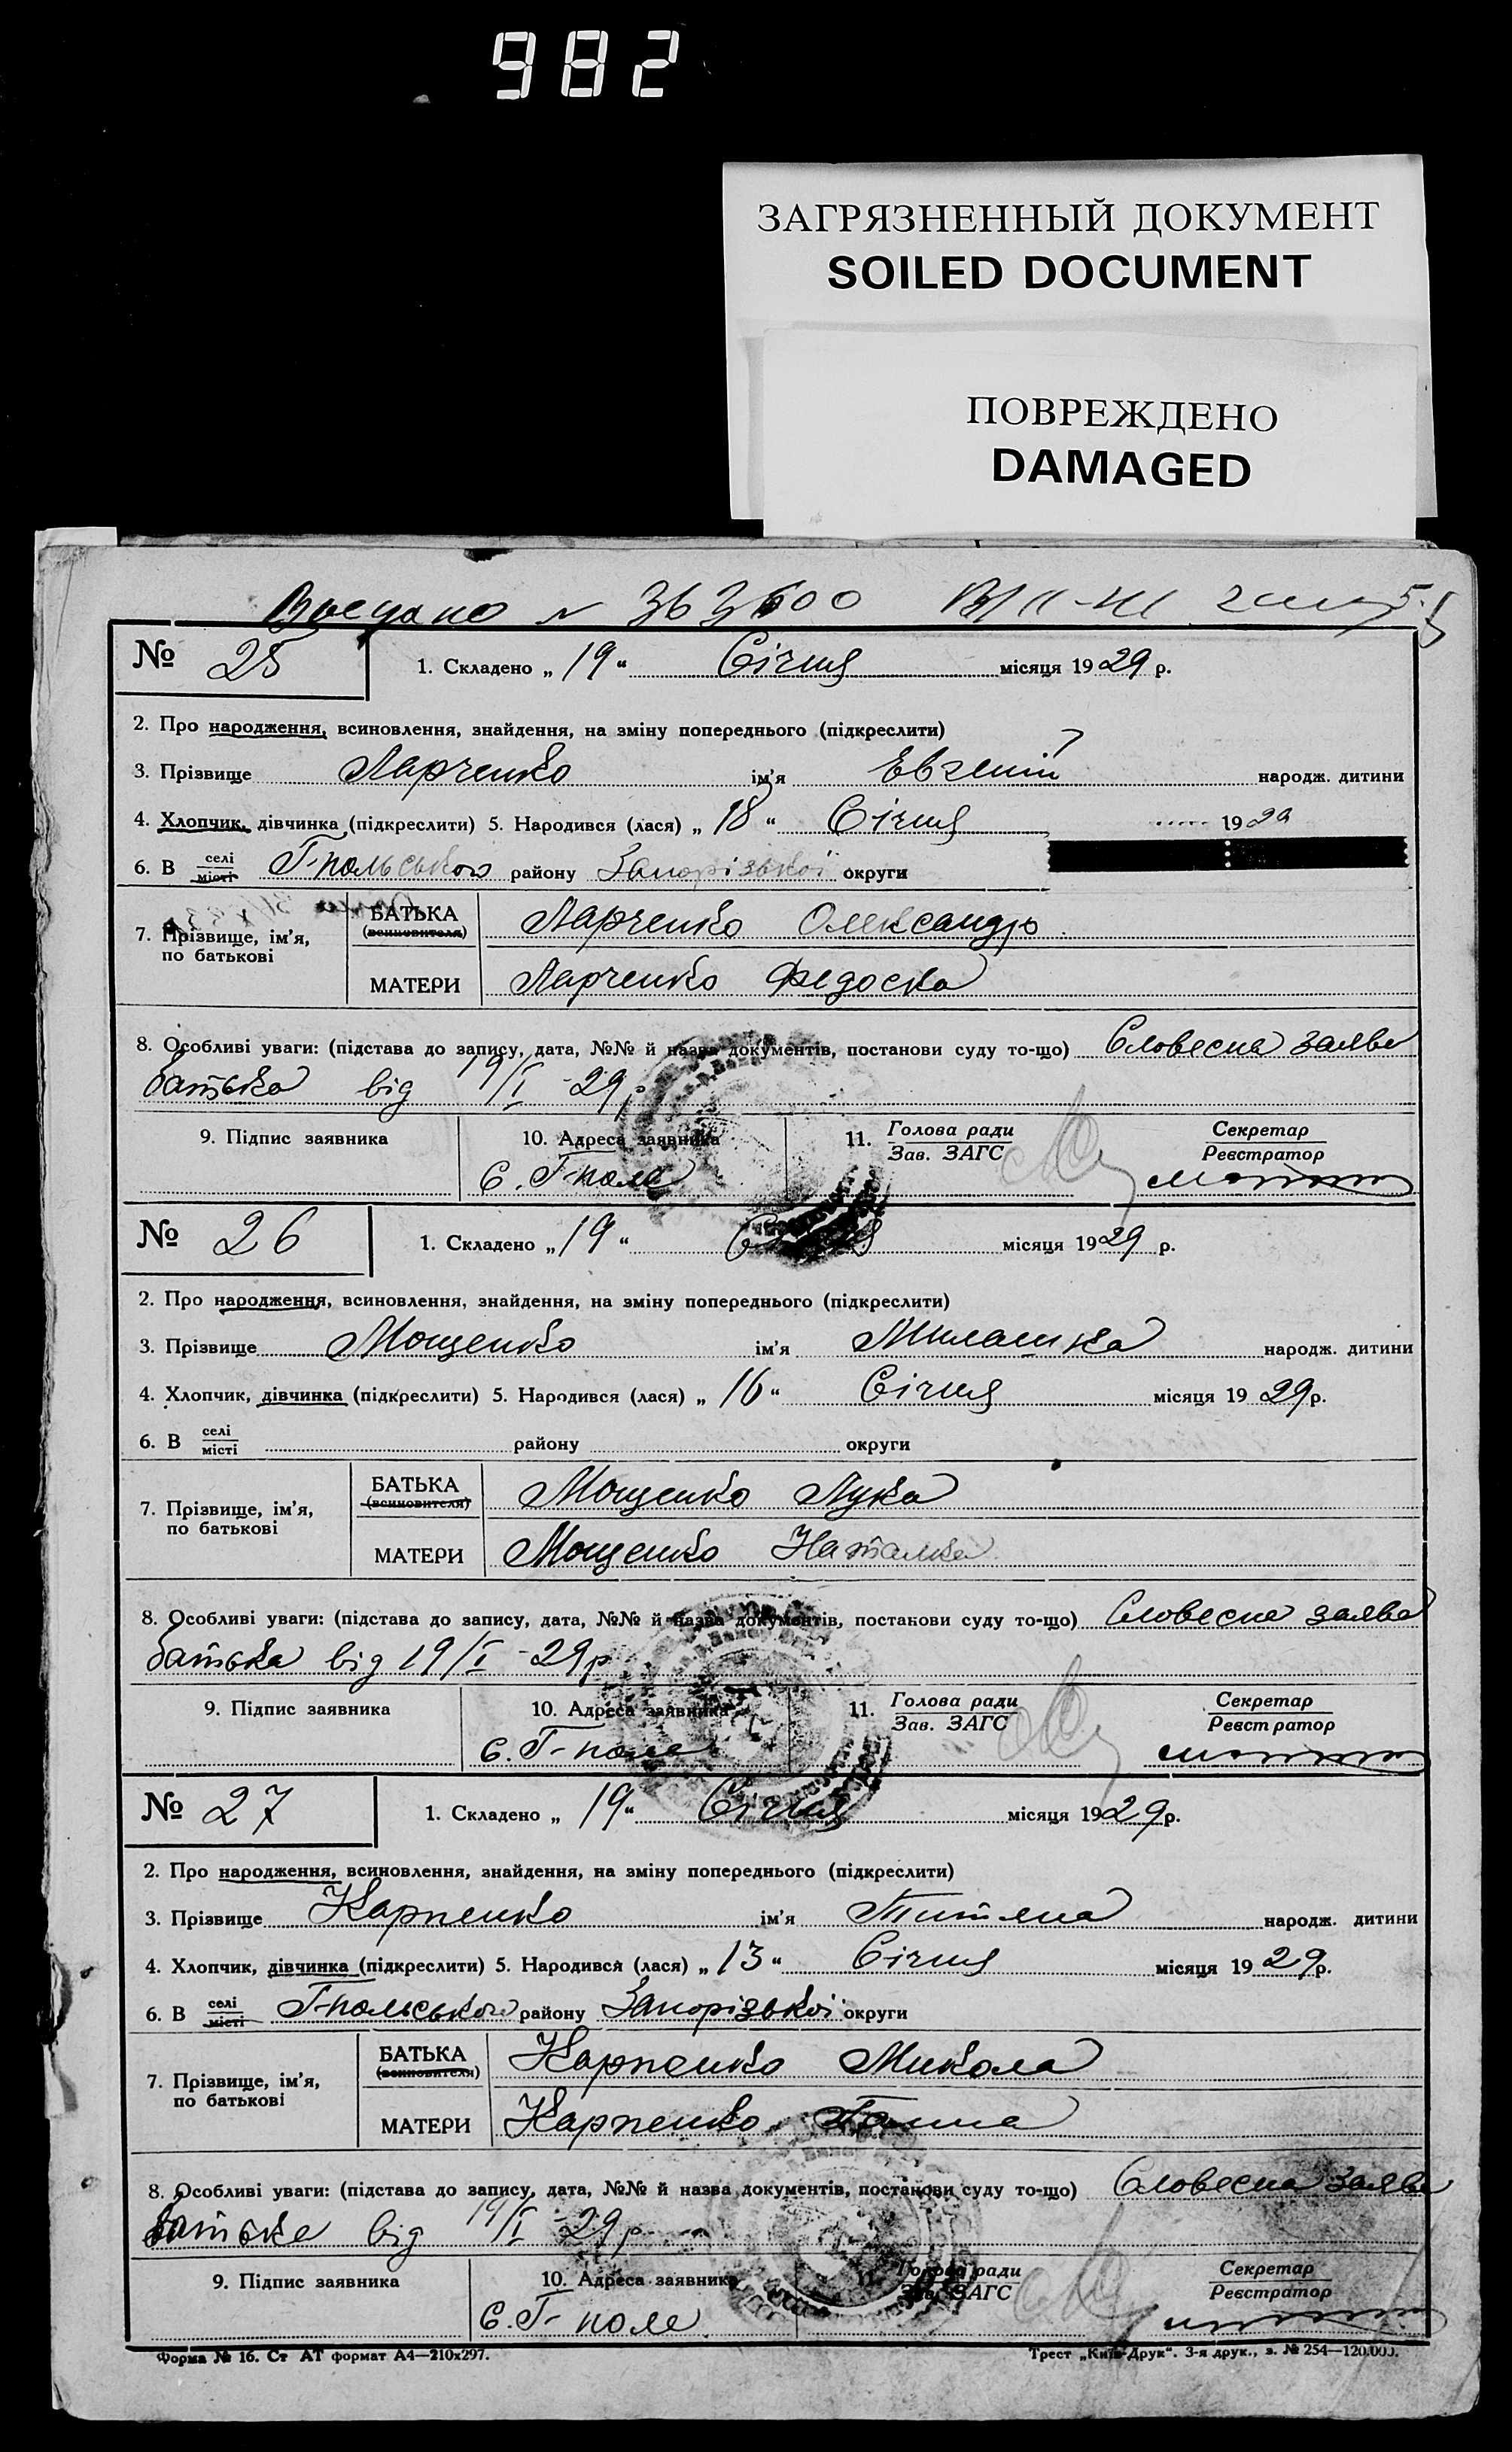 982
ЗАГРЯЗНЕННЫЙ ДОКУМЕНТ
SOILED DOCUMENT
ПОВРЕЖДЕНО
DAMAGED
№ 25 1. Складено „ 19 “ Січня місяця 1929 р.
2. Про народження, всиновлення, знайдення, на зміну попереднього (підкреслити)
3. Прізвище Ларченко ім'я Евгеній народж. дитини
4. Хлопчик, дівчинка (підкреслити) 5. Народився (лася) „ 18 “ Січня 1929
6. В селі місті Г-польського району Запорізької округи
7. Прізвище, ім'я, по батькові БАТЬКА (всиновителя) Ларченко Олександр
МАТЕРИ Ларченко Федоска
8. Особливі уваги: (підстава до запису, дата, №№ й назва документів, постанови суду то-що) Словесна заява
батька від 19/I - 29 р
9. Підпис заявника 10. Адреса заявника 11. Голова ради Зав. ЗАГС Секретар Реєстратор
с. Г-поле
№ 26 1. Складено „ 19 “ місяця 1929 р.
2. Про народження, всиновлення, знайдення, на зміну попереднього (підкреслити)
3. Прізвище Мощенко ім'я Милашка народж. дитини
4. Хлопчик, дівчинка (підкреслити) 5. Народився (лася) „ 16 “ Січня місяця 1929 р.
6. В селі місті району округи
7. Прізвище, ім'я, по батькові БАТЬКА (всиновителя) Мощенко Лука
МАТЕРИ Мощенко Наталка
8. Особливі уваги: (підстава до запису, дата, №№ й назва документів, постанови суду то-що) Словесна заява
батька від 19/I - 29 р
9. Підпис заявника 10. Адреса заявника 11. Голова ради Зав. ЗАГС Секретар Реєстратор
с. Г-поле
№ 27 1. Складено „ 19 “ Січня місяця 1929 р.
2. Про народження, всиновлення, знайдення, на зміну попереднього (підкреслити)
3. Прізвище Карпенко ім'я Титяна народж. дитини
4. Хлопчик, дівчинка (підкреслити) 5. Народився (лася) „ 13 “ Січня місяця 1929 р.
6. В селі місті Г-польського району Запорізької округи
7. Прізвище, ім'я, по батькові БАТЬКА (всиновителя) Карпенко Микола
МАТЕРИ Карпенко Ганна
8. Особливі уваги: (підстава до запису, дата, №№ й назва документів, постанови суду то-що) Словесна заява
батька від 19/I - 29 р
9. Підпис заявника 10. Адреса заявника 11. Голова ради Зав. ЗАГС Секретар Реєстратор
с. Г-поле
Форма № 16. Ст АТ формат А4—210х297. Трест „Київ-Друк“. 3-я друк., з. № 254—120.000.